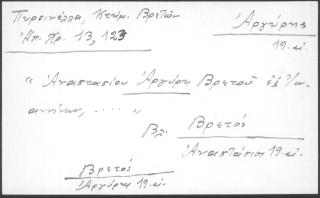 Πυρσινέλλα, Κτύμ. Βρετῶν
Ἀπ. Χρ. 13, 123
Ἀργύρης
19. αἰ.
"Ἀναστασίου Ἀργύρη Βρετοῦ ἐξ Ἰω.
αννίνων, ..... "
Βλ. Βρετός
Ἀναστάσιος 19. αἰ.
Βρετός
Ἀργύρης 19. αἰ.